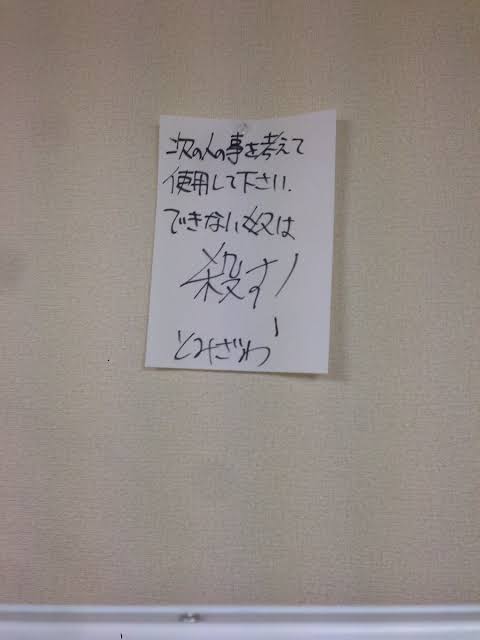 次の人の事を考えて
使用して下さい.
できない奴は
殺す!
とみざわ